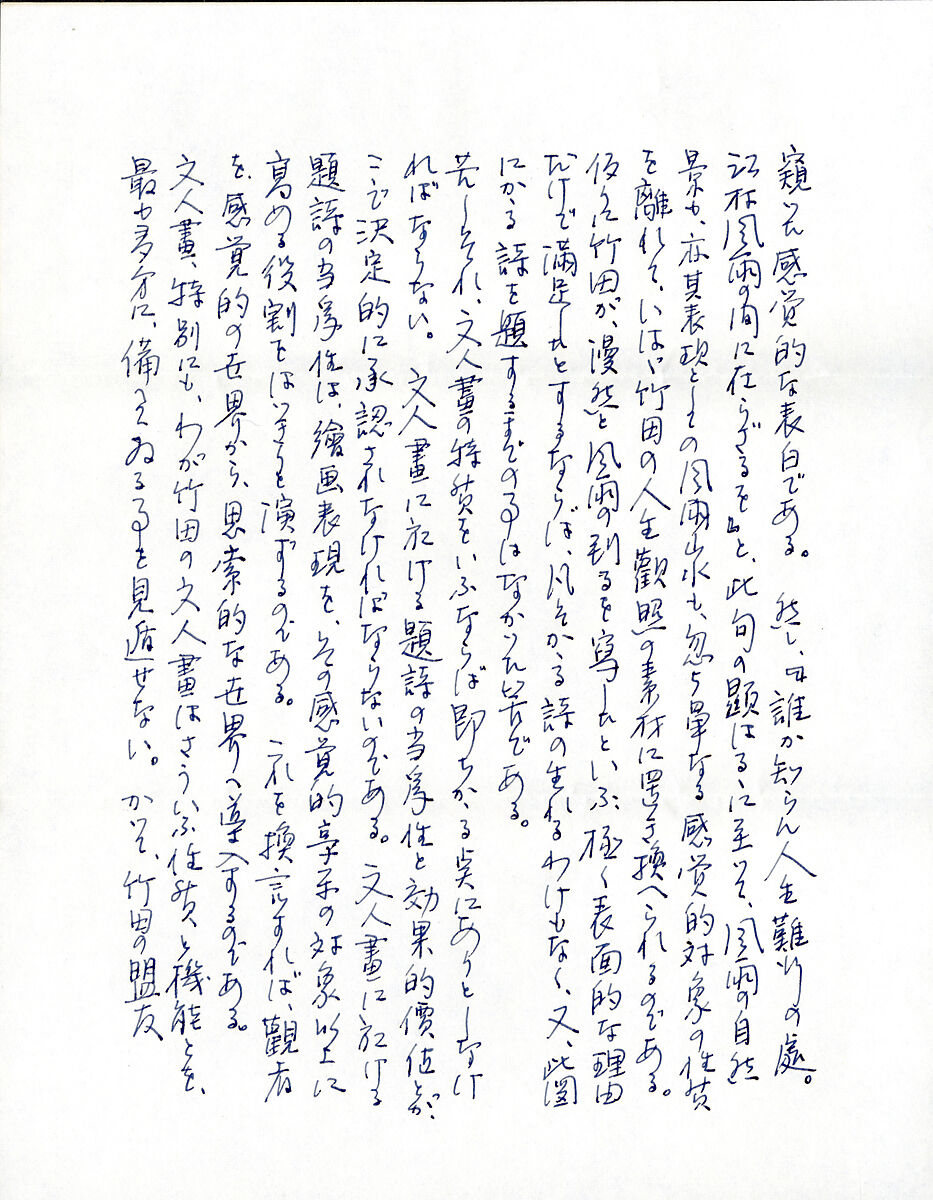 窺った感覚的な表白である。然し、『誰か知らん人生難行の處。
江村風雨の間に在らざるを』と、此句の顕はるに至って、風雨の自然
景も、亦其表現としての風雨山水も、忽ち単なる感覚的対象の性質
を離れて、いはゞ竹田の人生觀照の素材に置き換へられるのである。
仮りに竹田が、漫然と風雨の到るを寫したといふ極く表面的な理由
だけで満足したとするならば、凡そかゝる詩の生れるわけもなく、又、此圖
にかゝる詩を題するまでの事はなかった筈である。
若しそれ、文人畫の特質をいふならば即ちかゝる点にありとしなけ
ればならない。文人畫に於ける題詩の当為性と効果的價値とが、
こゝで決定的に承認されなければならないのである。文人畫に於ける
題詩の当為性は、繪画表現を、その感覚的享受の対象以上に
高める役割をはっきりと演ずるのである。これを換言すれば、觀者
を、感覚的の世界から、思索的な世界へ導入するのである。
文人畫、特別にも、わが竹田の文人畫はさういふ性質と機能とを、
最も多分に、備へてゐる事を見遁せない。かつて、竹田の盟友